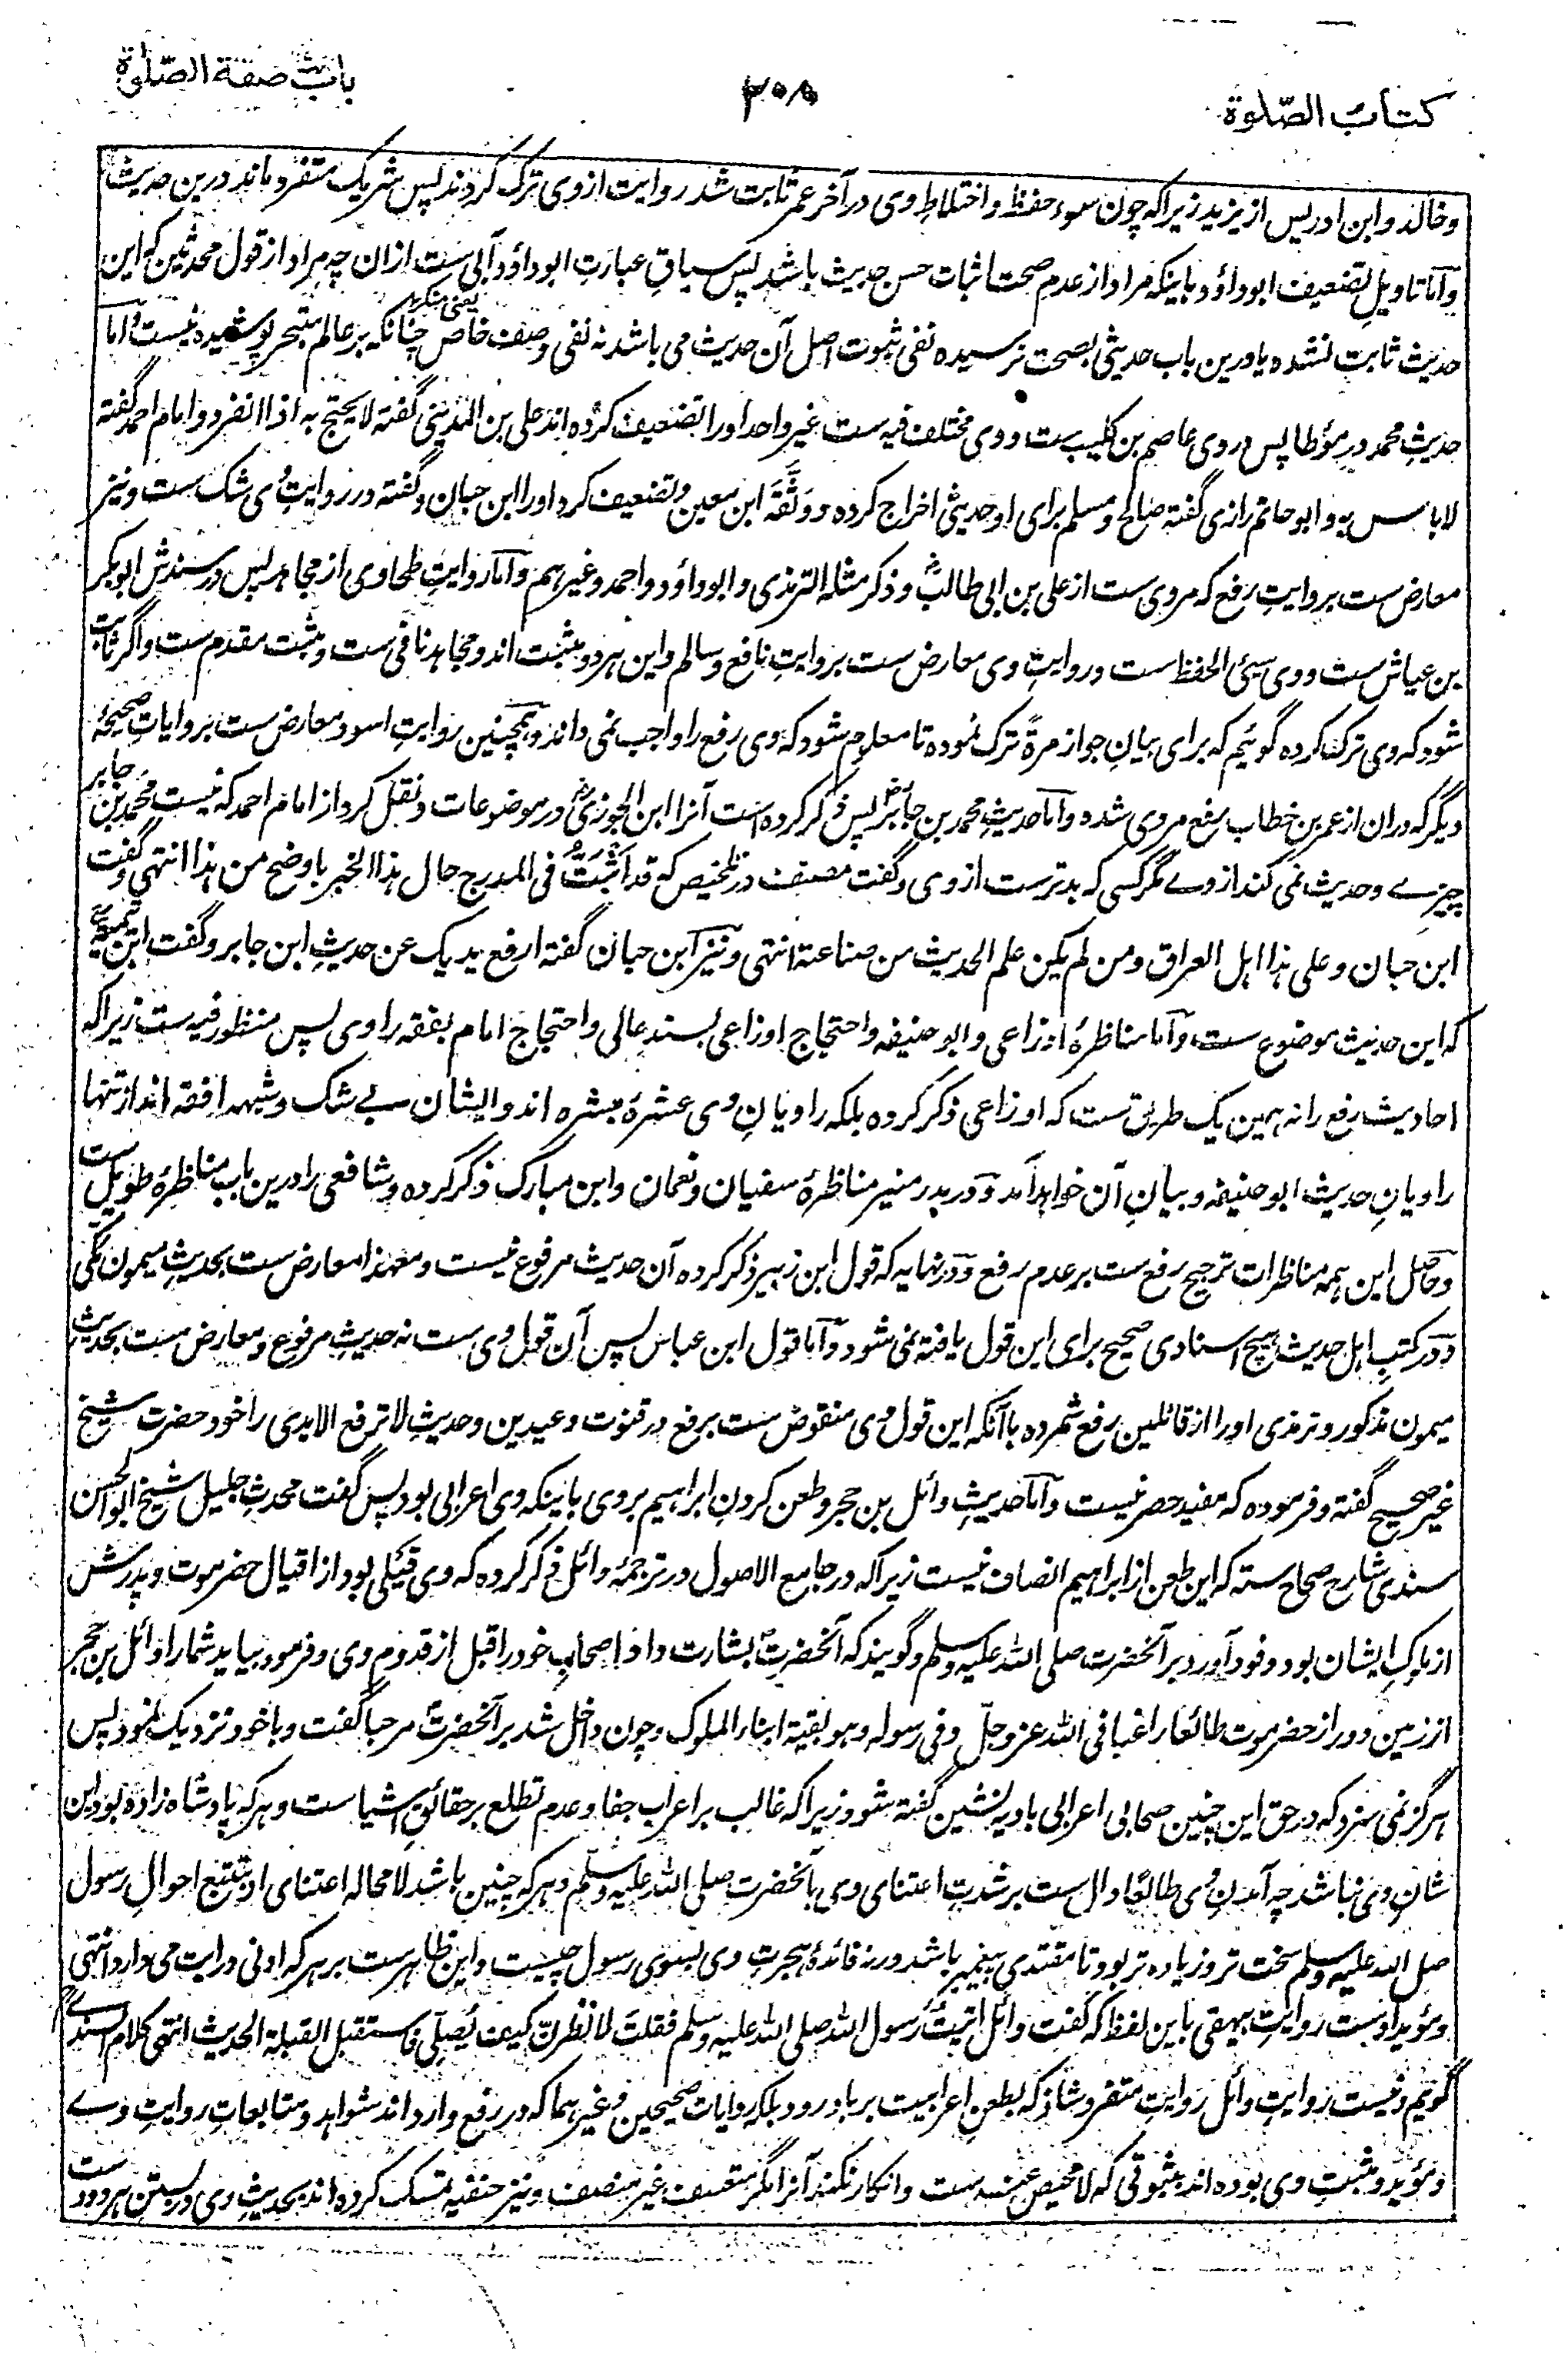 کتاب الصّلوة
۳۰۸
باب صفة الصّلوة
وخالد و ابن ادریس از یزید زیراکه چون سوء حفظ و اختلاط وی در آخر عمر ثابت شد روایت ازوی ترک کردند پس شریک متفرد ماند درین حدیث
و اما تاویل تضعیف ابوداؤد باینکه مراد از عدم صحت اثبات حسن حدیث باشد پس سیاق عبارت ابوداؤد آبی ست ازان چه مراد از قول محدثین که این
حدیث ثابت نشده یا درین باب حدیثی بصحت نرسیده نفی ثبوت اصل آن حدیث می باشد نه نفی وصف خاص چنانکه بر عالم متبحر پوشیده نیست و اما
حدیث محمد در مؤطا پس در وی عاصم بن کلیب ست و وی مختلف فیه ست غیر واحد او را تضعیف کرده اند علی بن المدینی گفته لا یحتج به اذا انفرد و امام احمد گفته
لا باس به و ابو حاتم رازی گفته صالح و مسلم برای او حدیثی اخراج کرده و وَثَّقَهُ ابن معین و تضعیف کرد او را ابن حبان و گفته در روایت وی شک ست و نیز
معارض ست بروایت رفع که مروی ست از علی بن ابی طالب و ذکر مثله الترمذی و ابوداؤد و احمد و غیرهم و اما روایت طحاوی از مجاهد پس در سندش ابوبکر
بن عیاش ست و وی سیئ الحفظ ست و روایت وی معارض ست بروایت نافع و سالم و این هر دو مثبت اند و مجاهد نافی ست و مثبت مقدم ست و اگر ثابت
شود که وی ترک کرده گوئیم که برای بیان جواز مرةً ترک نموده تا معلوم شود که وی رفع را واجب نمی داند و همچنین روایت اسود معارض ست بروایات صحیحهٔ
دیگر که دران از عمر بن خطاب رفع مروی شده و اما حدیث محمد بن جابر پس ذکر کرده است آنرا ابن الجوزی در موضوعات و نقل کرد از امام احمد که نیست محمد بن جابر
چیزے و حدیث نمی کند از وے مگر کسی که بدتر ست از وی و گفت مصنف در تلخیص که قد اثبتُ فی المدرج حال هذا الخبر باوضح من هذا انتهی و گفت
ابن حبان و علی هذا اهل العراق و من لم یکن علم الحدیث من صناعته انتهی و نیز ابن حبان گفته ارفع یدیک عن حدیث ابن جابر و گفت ابن تیمیه
که این حدیث موضوع ست و اما مناظرهٔ اوزاعی و ابو حنیفه و احتجاج اوزاعی بسند عالی و احتجاج امام بفقه راوی پس منظور فیه ست زیراکه
احادیث رفع را نه همین یک طریق ست که اوزاعی ذکر کرده بلکه راویان وی عشرهٔ مبشره اند و ایشان بے شک و شبهه افقه اند از تنها
راویان حدیث ابو حنیفه و بیان آن خواهد آمد و در بدر منیر مناظرهٔ سفیان و نعمان و ابن مبارک ذکر کرده و شافعی را درین باب مناظرهٔ طویل ست
و حاصل این همه مناظرات ترجیح رفع ست بر عدم رفع و در نهایه که قول ابن زبیر ذکر کرده آن حدیث مرفوع نیست و معهذا معارض ست بحدیث میمون مکی
و در کتب اهل حدیث هیچ اسنادی صحیح برای این قول یافته نمی شود و اما قول ابن عباس پس آن قول وی ست نه حدیث مرفوع و معارض ست بحدیث
میمون مذکور و ترمذی او را از قائلین رفع شمرده با آنکه این قول وی منقوض ست برفع در قنوت و عیدین و حدیث لا ترفع الایدی را خود حضرت شیخ
غیر صحیح گفته و فرموده که مفید حصر نیست و اما حدیث وائل بن حجر و طعن کردن ابراهیم بروی باینکه وی اعرابی بود پس گفت محدث جلیل شیخ ابو الحسن
سندی شارح صحاح سته که این طعن از ابراهیم انصاف نیست زیراکه در جامع الاصول در ترجمهٔ وائل ذکر کرده که وی قیلی بود از اقیال حضرموت و پدرش
از ملوک ایشان بود و فود آورد بر آنحضرت صلی الله علیه وسلم و گویند که آنحضرت بشارت داد اصحاب خود را قبل از قدوم وی و فرمود بیاید شمارا وائل بن حجر
از زمین دور از حضرموت طائعا راغبا فی الله عز و جلّ و فی رسوله و هو بقیة ابناء الملوک و چون داخل شد بر آنحضرت مرحبا گفت و با خود نزدیک نمود پس
هرگز نمی سزد که در حق این چنین صحابی اعرابی بادیه نشین گفته شود زیراکه غالب بر اعراب جفا و عدم تطلع بر حقائق اشیا ست و هرکه پادشاه زاده بود این
شان وی نباشد چه آمدن وی طائعًا دال ست بر شدت اعتنای وی بآنحضرت صلی الله علیه وسلم و هرکه چنین باشد لا محاله اعتنای او بتتبع احوال رسول
صلی الله علیه وسلم سخت تر و زیاده تر بود تا مقتدی بپیغمبر باشد ورنه فائدهٔ هجرت وی بسوی رسول چیست و این ظاهر ست بر هر که ادنی درایت می دارد انتهی
و مؤید اوست روایت بیهقی باین لفظ که گفت وائل اتیتُ رسول الله صلی الله علیه وسلم فقلت لانظرنّ کیف یُصلّی فاستقبل القبلة الحدیث انتهی کلام السندی
گویم و نیست روایت وائل روایت متفرد شاذ که بطعن اعرابیت بر باد رود بلکه روایات صحیحین و غیرهما که در رفع وارد اند شواهد و متابعات روایت وے
و مؤید و مثبت وی بوده اند بثبوتی که لا محیص عنه ست و انکار نکند آنرا مگر متعسف غیر منصف و نیز حنفیه تمسک کرده اند بحدیث وی در بستن هر دو دست